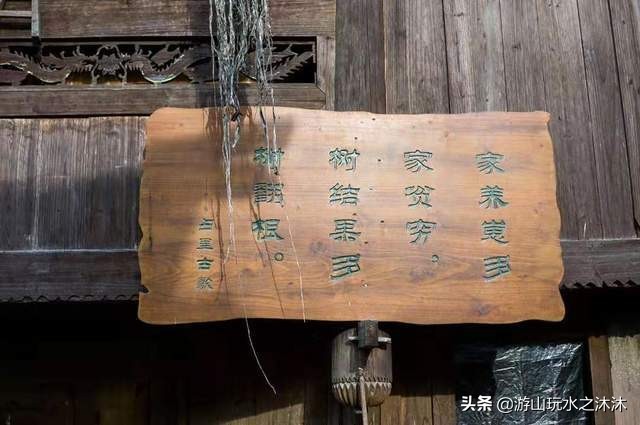 家养崽多
家贫穷。
树结果多
树翻根。
占里古歌
头条 @游山玩水之沐沐